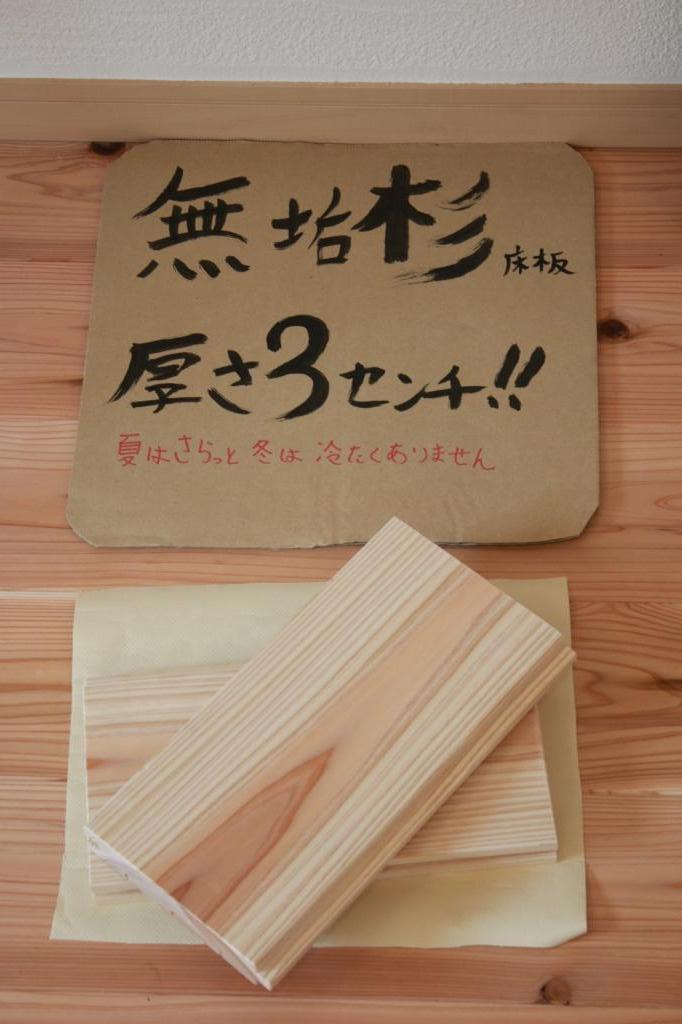 無垢杉床板
厚さ3センチ!!
夏はさらっと 冬は 冷たくありません